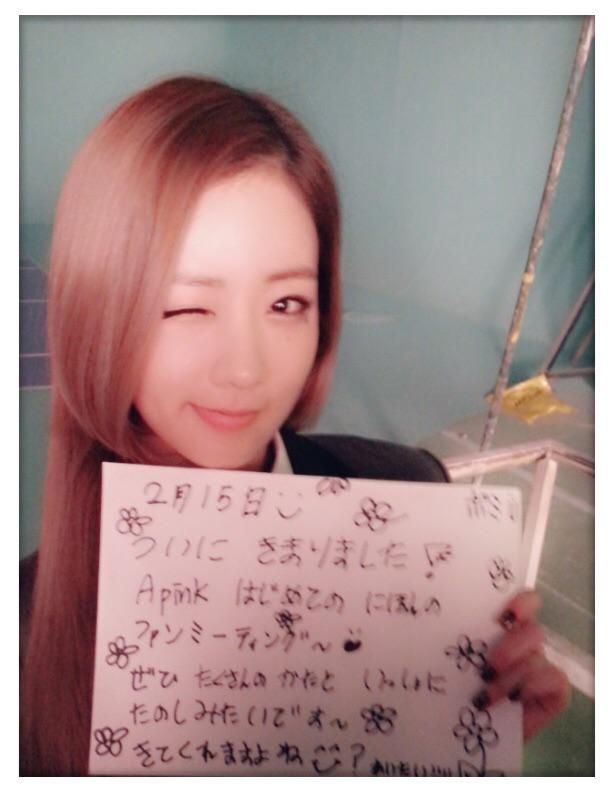 2月15日 ボミ
ついに きまりました！
Apink はじめての にほんの
ファンミーティング～
ぜひ たくさんの かたと いっしょに
たのしみたいです～
きてくれますよね ? あいたいい